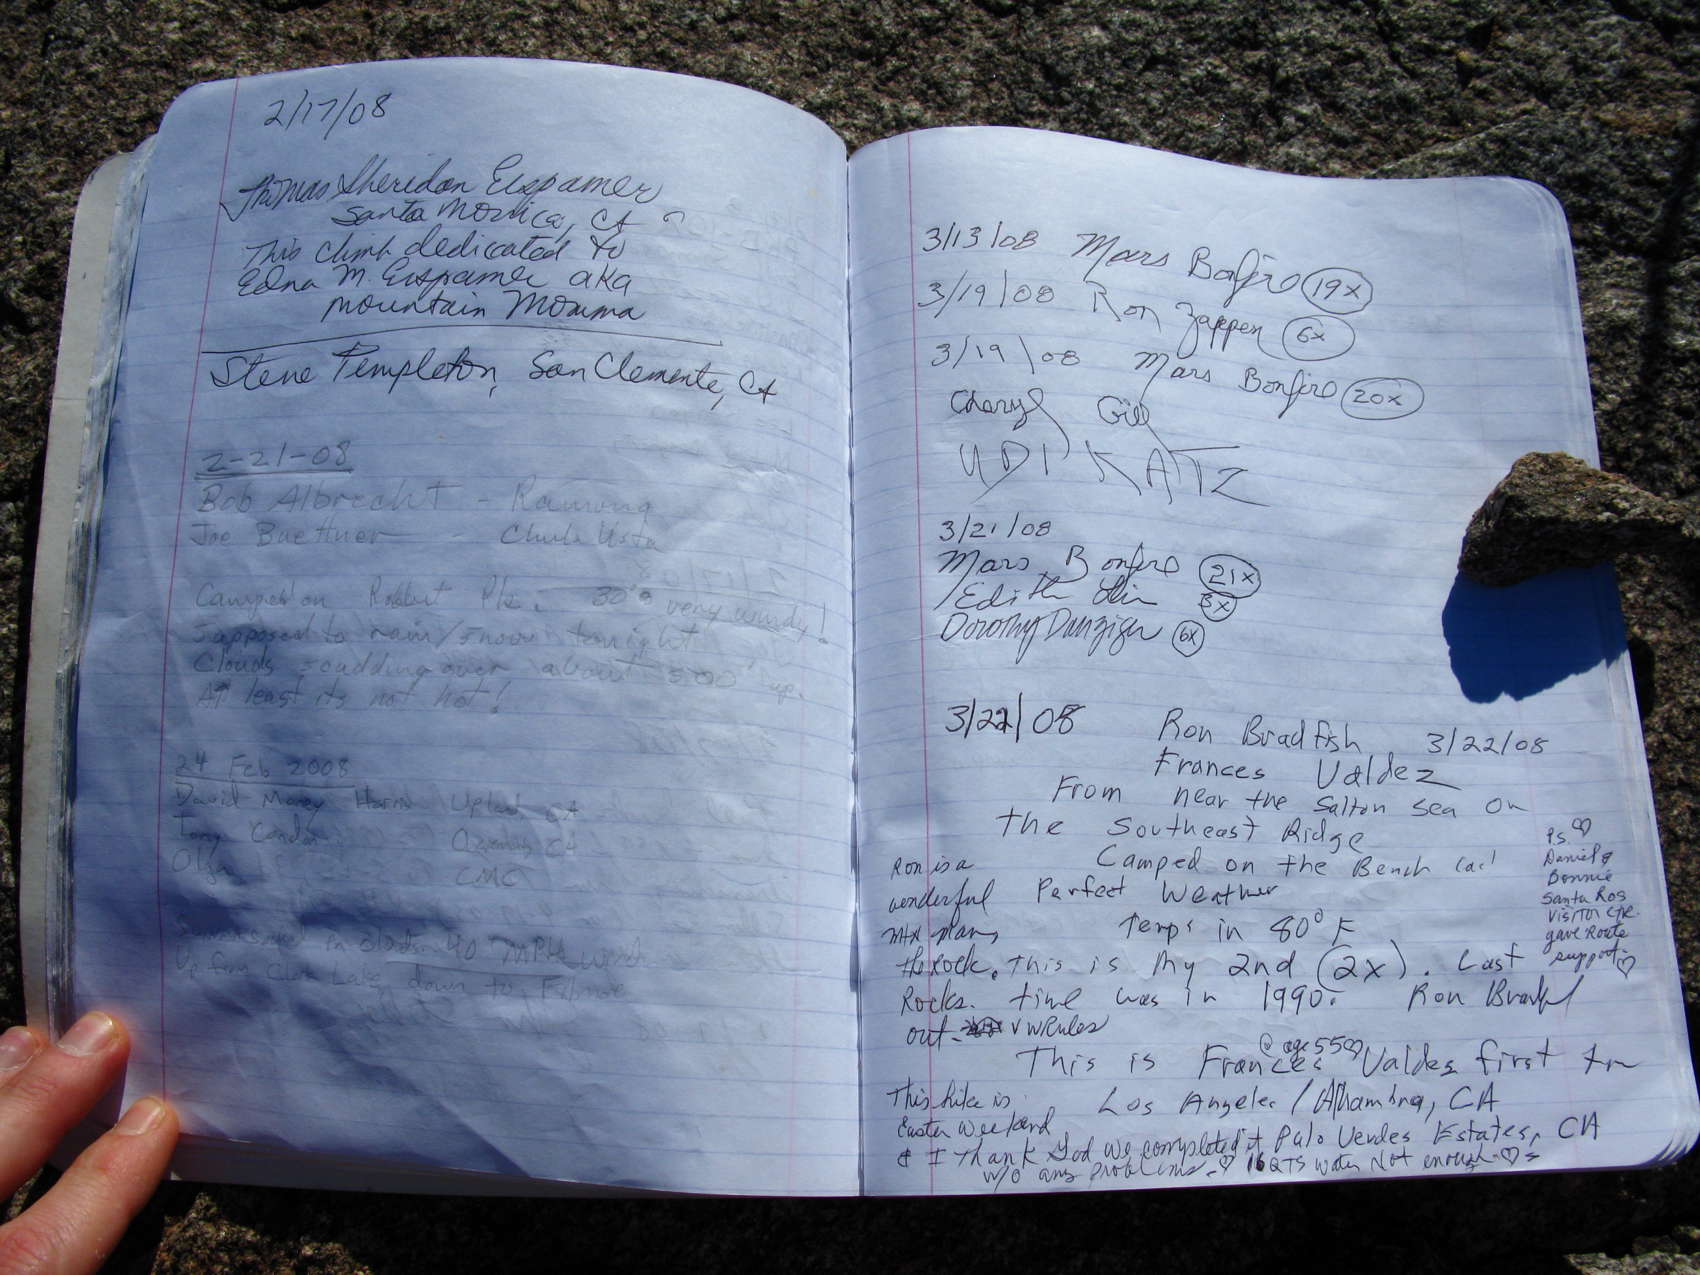 2/17/08
Thomas Sheridan Eispamer
Santa Monica, CA
This climb dedicated to
Edna M. Eispamer aka
mountain Momma
Steve Templeton, San Clemente, CA
2-21-08
Bob Albrecht - Ramona
Joe Buettner - Chula Vista
Camped on Rabbit Pk. 30° very windy!
Supposed to rain/snow tonight
Clouds scudding over about 500' up.
At least its not hot!
24 Feb 2008
David Harris Upland CA
Tony CA
Olga CMC
Summited in clouds 40 MPH wind
Up from Clark Lake, down to
3/13/08 Mars Bonfire 19x
3/19/08 Ron Zappen 6x
3/19/08 Mars Bonfire 20x
Cheryl Gill
UDI KATZ
3/21/08
Mars Bonfire 21x
Edith Liu 3x
Dorothy Danziger 6x
3/22/08 Ron Bradfish 3/22/08
Frances Valdez
From near the Salton Sea on
the Southeast Ridge
Camped on the Bench
Perfect Weather
Temps in 80° F
This is my 2nd (2x). Last
time was in 1990. Ron
Ron is a
wonderful
mtn man,
the rock.
Rocks.
out. VW Rules
P.S. ♡
Daniel &
Bonnie
Santa Ros
Visitor Ctr.
gave Route
support. ♡
@ age 55 ♡
This is Frances Valdez first
Los Angeles / Alhambra, CA
This hike is
Easter weekend
& I thank God we completed it Palo Verdes Estates, CA
w/o any problems. ♡ 16 QTS water Not enough. ♡